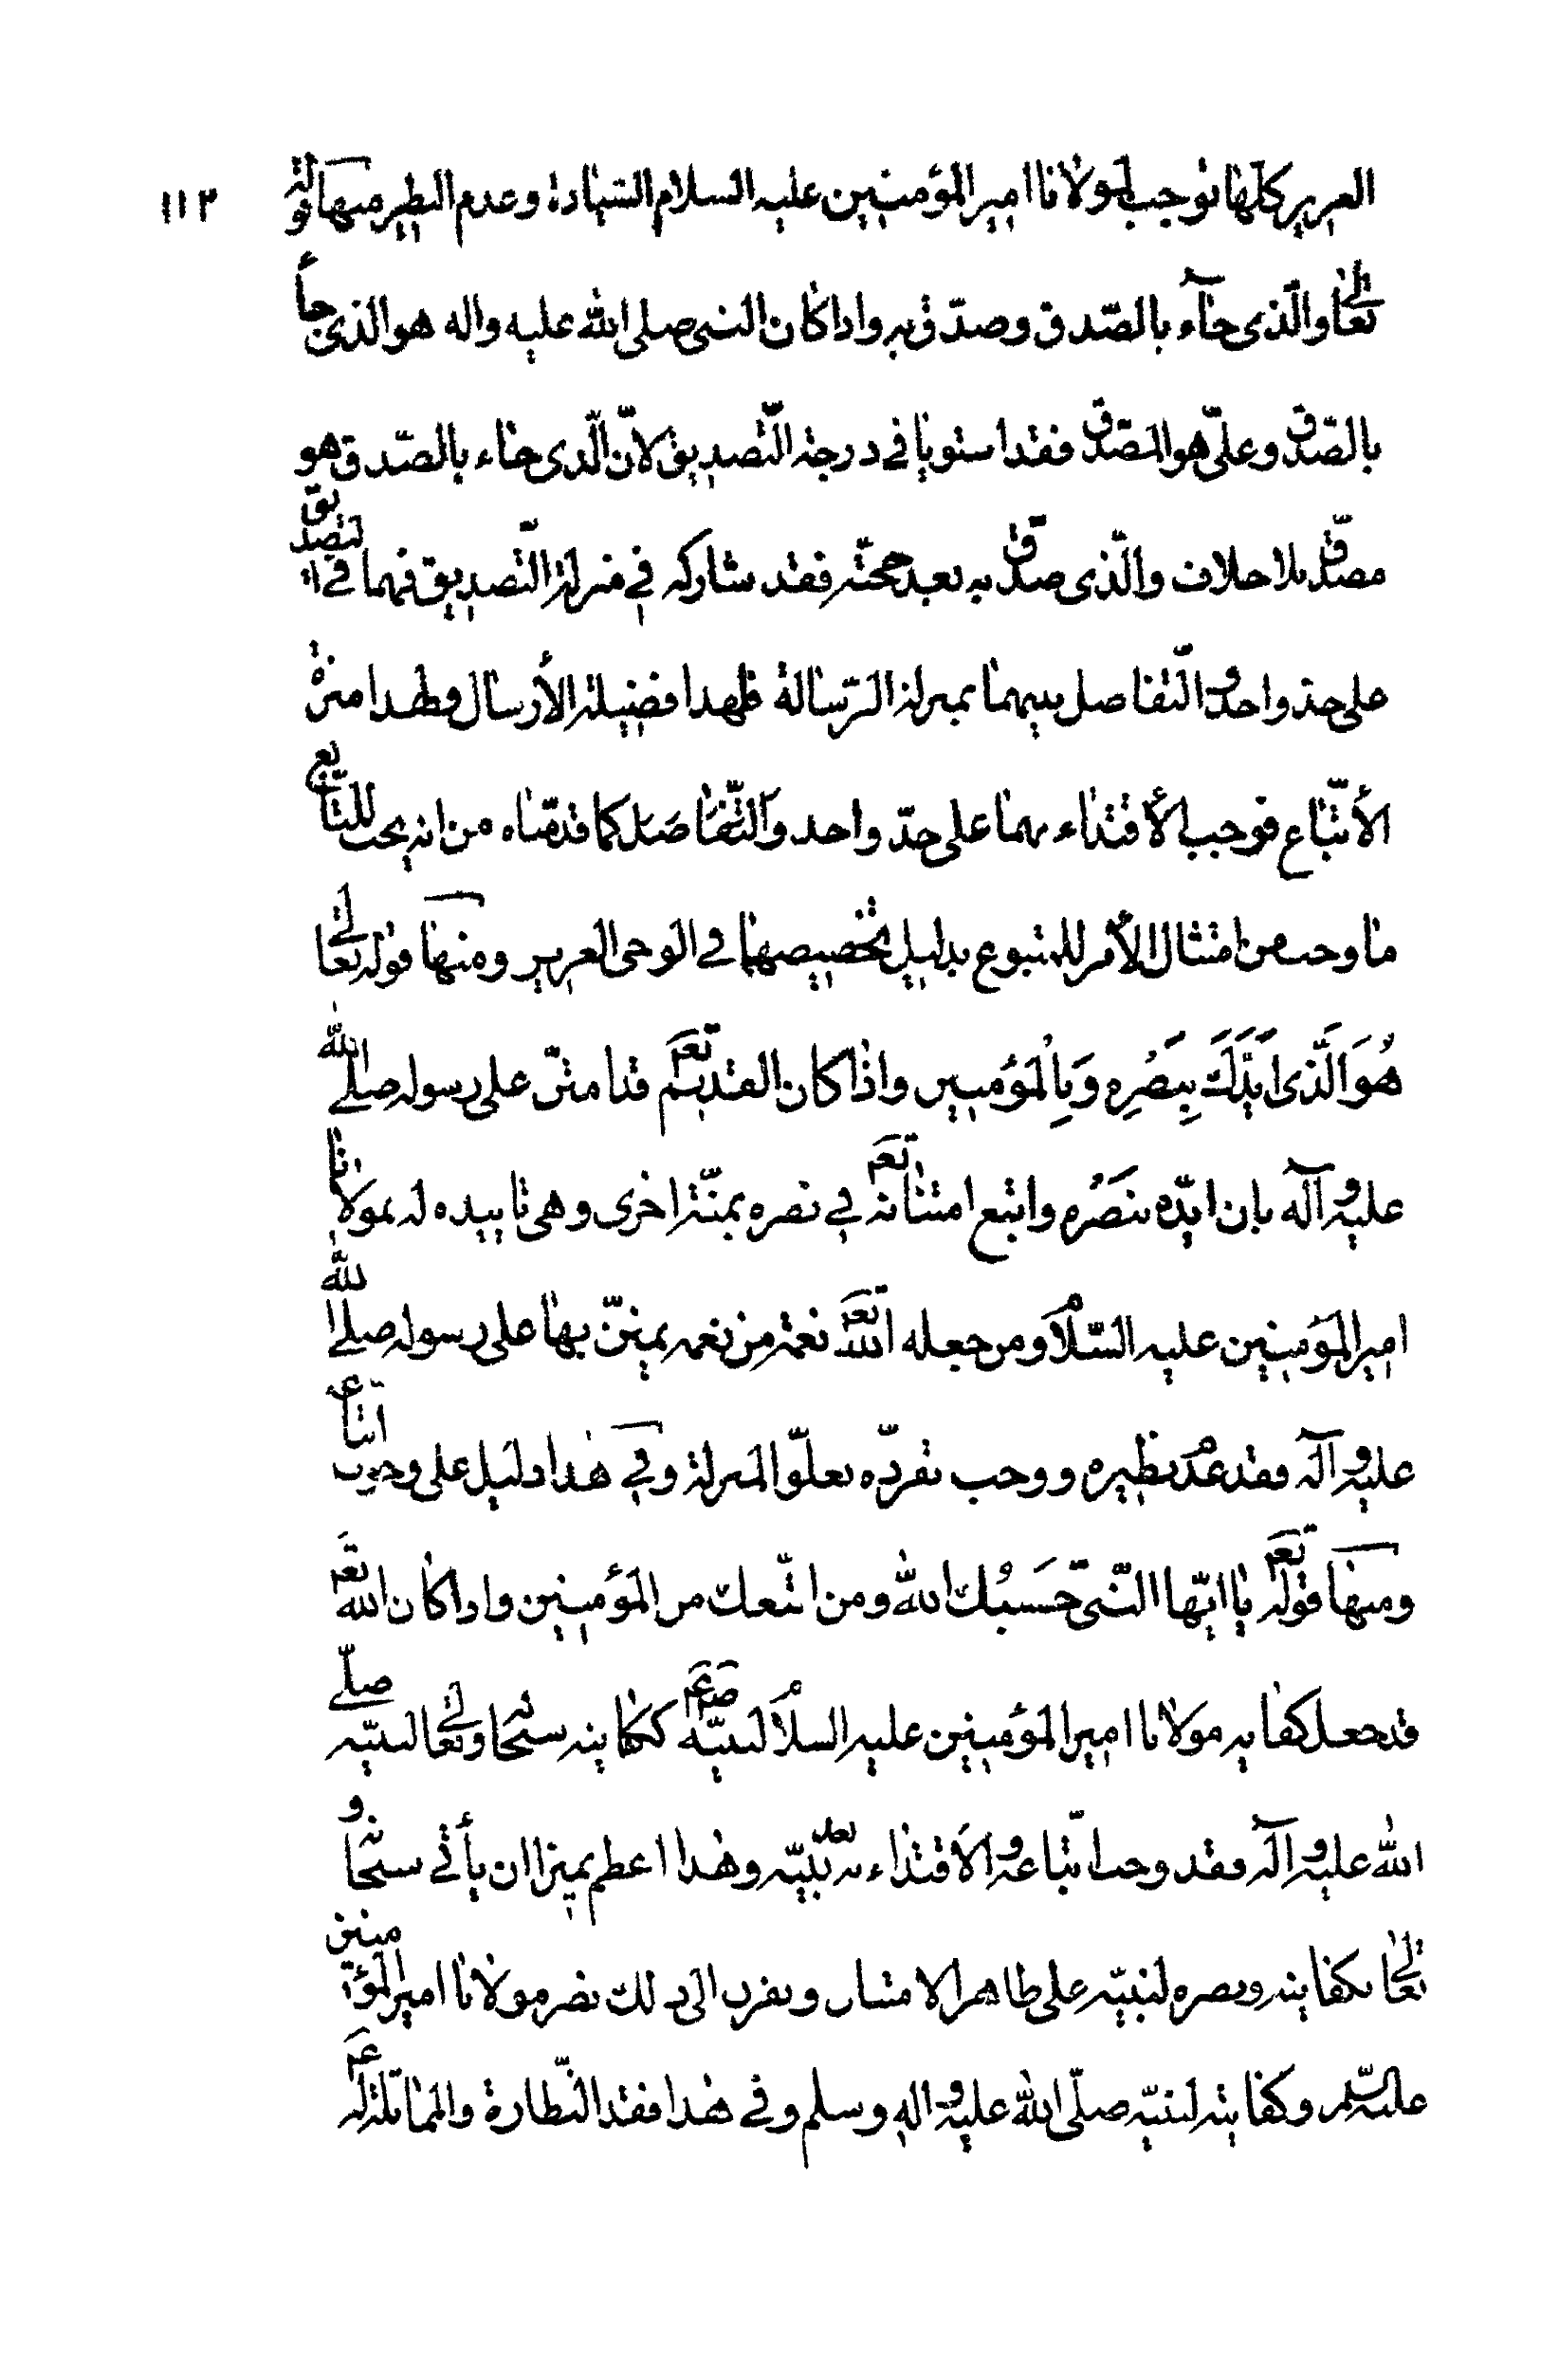 ١١٣
العزيز كلها توجب لمولانا امير المؤمنين عليه السلام الشهادة وعدم النظير منها قوله
تعالى والّذى جآء بالصّدق وصدّق به واذا كان النبى صلى الله عليه واله هو الذى جأ
بالصّدق وعلىّ هو المصدّق فقد استويا في درجة التّصديق لانّ الّذى جاء بالصّدق هو
مصدّق بلا خلاف والّذى صدّق به بعد صحّته فقد شاركه في منزلة التّصديق فهما في التصديق
على حد واحد والتّفاضل بينهما بمنزلة الرّسالة فلهذا فضيلة الأرسال ولهذا منزلة
الأتّباع فوجب الأقتداء بهما على حدّ واحد والتّفاضل كما قدمناه من انه يجب للتّابع
ما وجب من امتثال الأمر للمتبوع بدليل تخصيصهما في الوحى العزيز ومنها قوله تعالى
هُوَ الَّذى اَيَّدَكَ بِنَصْرِهِ وَبِالْمُؤمنين واذا كان القديم تعَ قد امتنّ على رسوله صلى الله
عليه وآله بان ايّده بنصره واتبع امتنانه تعَ في نصره بمنّة اخرى وهى تاييده له بمولانا
امير المؤمنين عليه السّلام ومن جعله الله تعَ نعمة من نعمه يمتنّ بها على رسوله صلى الله
عليه وآله فقد عدم نظيره ووجب تفرّده بعلوّ المنزلة وفي هذا دليل على وجوب اتباعه
ومنها قوله تعَ يا ايّها النّبىّ حَسبُك الله ومن اتّبعك من المؤمنين واذا كان الله تعَ
قد جعل كفاية مولانا امير المؤمنين عليه السلام لنبيّه صَعَم ككفايته سبحانه وتعالى لنبيّه صلّى
الله عليه وآله فقد وجب اتّباعه والأقتداء به بعد نبيّه وهذا اعظم تميزا ان يأتى سبحانه و
تعالى بكفايته ونصره لنبيّه على ظاهر الامتنان ويقرن الى ذلك نصر مولانا امير المؤمنين
عليه السّلم وكفايته لنبيّه صلّى الله عليه واله وسلم وفي هذا فقد النّظارة والمماثلة له عَم